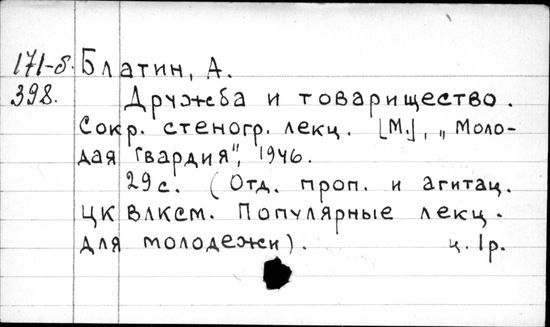 171-б. Блатин, А.
398. Дружба и товарищество.
Сокр. стеногр. лекц. [М.], „Моло-
дая Гвардия", 1946.
29 с. (Отд. проп. и агитац.
ЦК ВЛКСМ. Популярные лекц.
для молодежи). ц. 1 р.